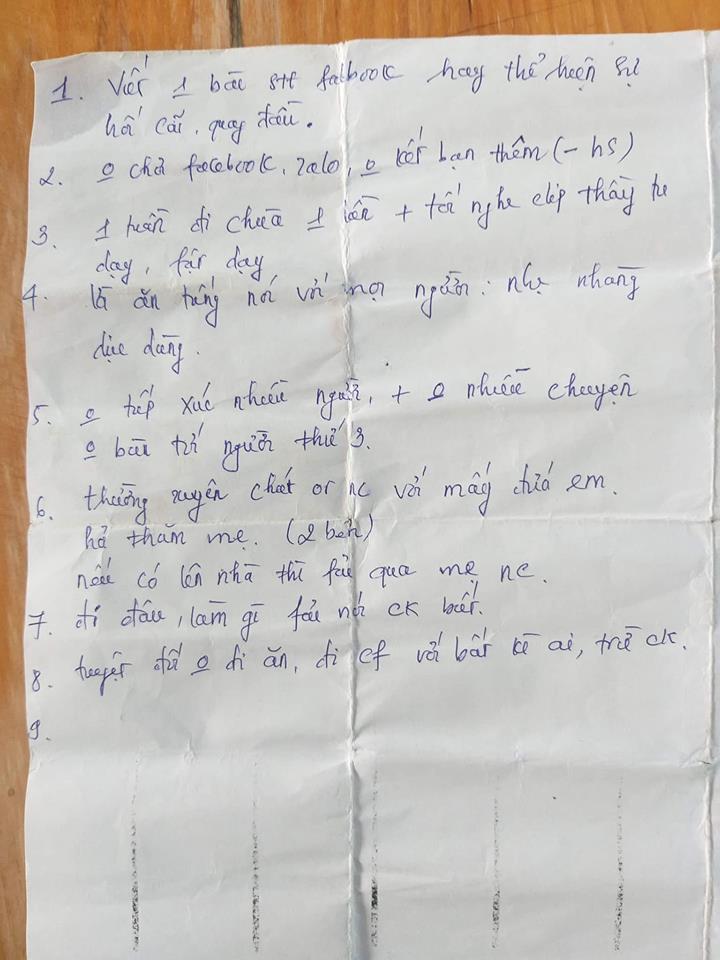 1. Viết 1 bài stt facbook hay thể hiện sự
hối cãi, quay đầu.
2. o chơi facebook, zalo, o kết bạn thêm (- hs)
3. 1 tuần đi chùa 1 lần + tối nghe clip thầy tu
dạy, fật dạy
4. lời ăn tiếng nói với mọi người: nhẹ nhang
dịu dàng.
5. o tiếp xúc nhiều người, + o nhiều chuyện
o bàn tới người thứ 3.
6. thường xuyên chat or nc với mấy chú em.
hỏi thăm mẹ. (2 bên)
nếu có lên nhà thì fải qua mẹ nc.
7. đi đâu, làm gì fải nói ck biết.
8. tuyệt đối o đi ăn, đi cf với bất kì ai, trừ ck.
9.